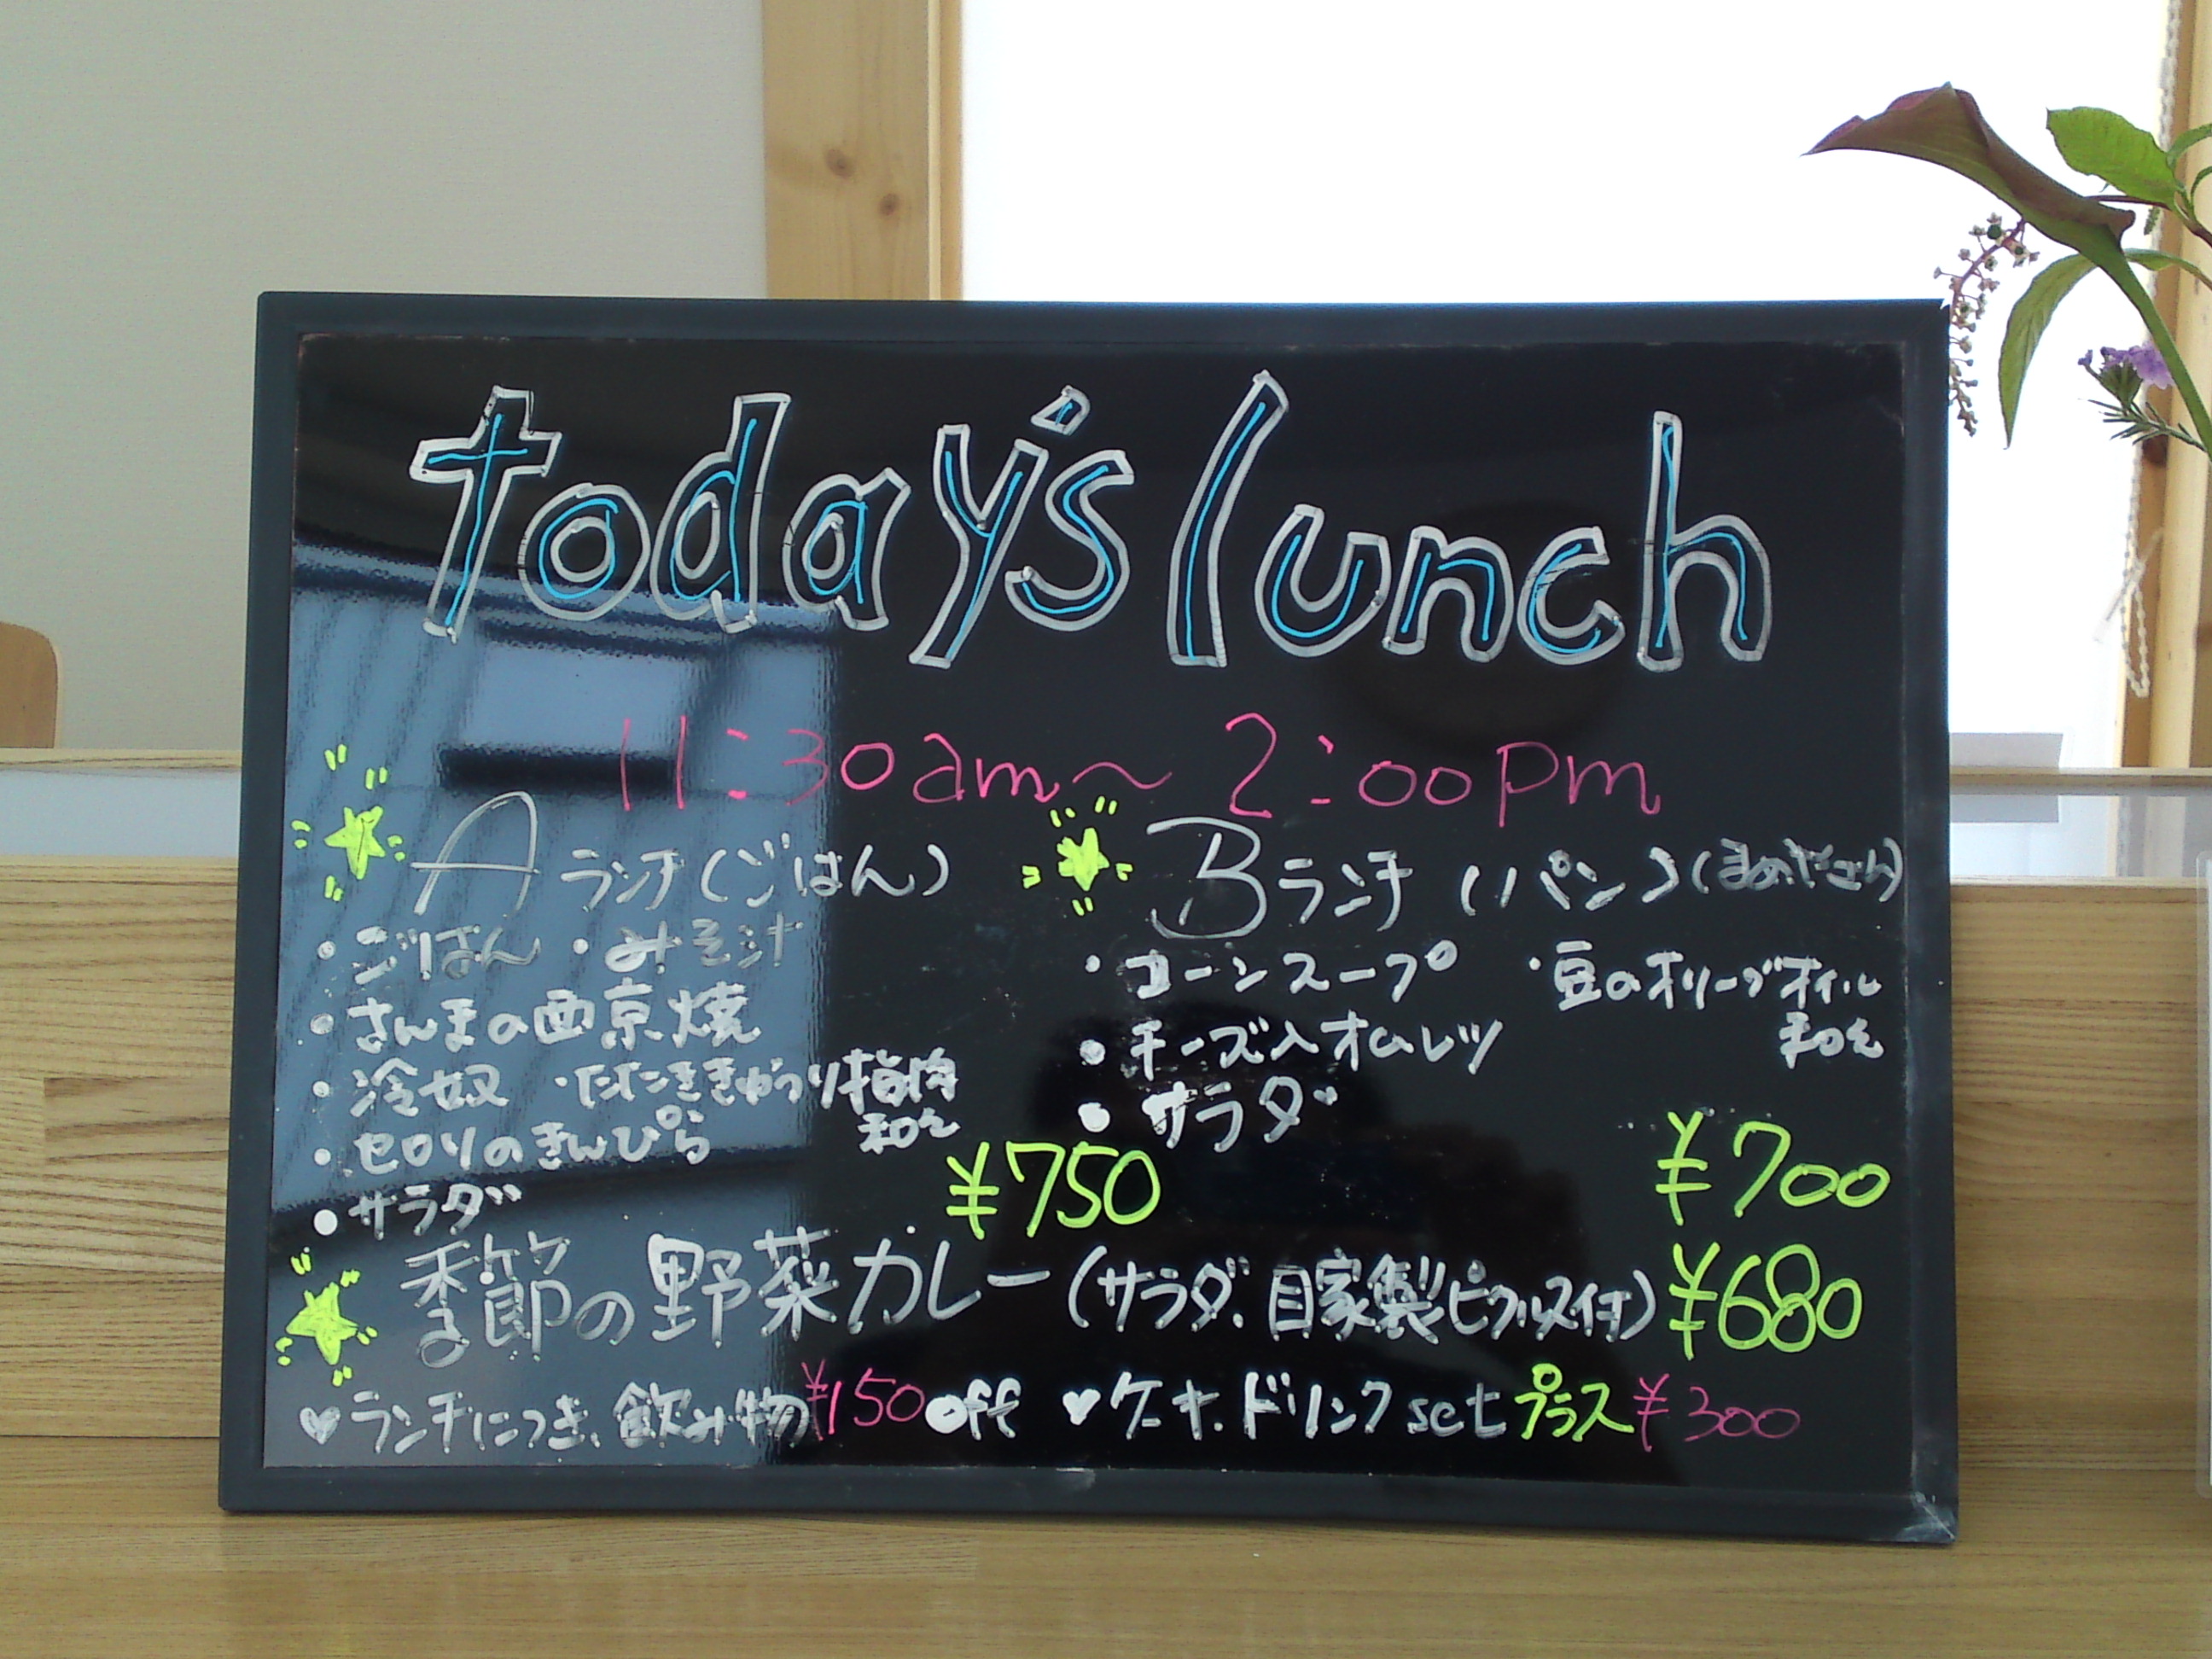 today's lunch
11:30am～2:00pm
Aランチ(ごはん)
・ごはん ・みそ汁
・さんまの西京焼
・冷奴 ・たたききゅうり梅肉
和え
・セロリのきんぴら
・サラダ
¥750
Bランチ(パン)(まめやさん)
・コーンスープ ・豆のオリーブオイル
和え
・チーズ入オムレツ
・サラダ
¥700
季節の野菜カレー(サラダ、自家製ピクルス付) ¥680
♥ランチにつき、飲み物¥150off ♥ケーキ・ドリンクsetプラス¥300